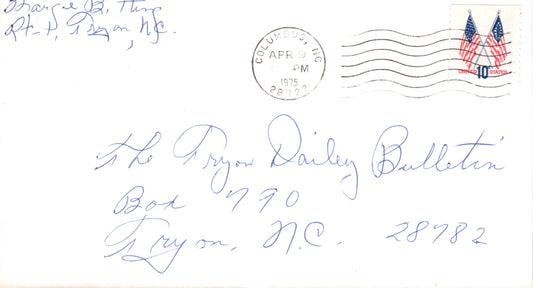 Margie B.
Rt-1, Tryon, N.C.
COLUMBUS, NC
APR 9
PM
1975
28722
UNITED STATES
10¢
The Tryon Dailey Bulletin
Box 790
Tryon, N.C. 28782